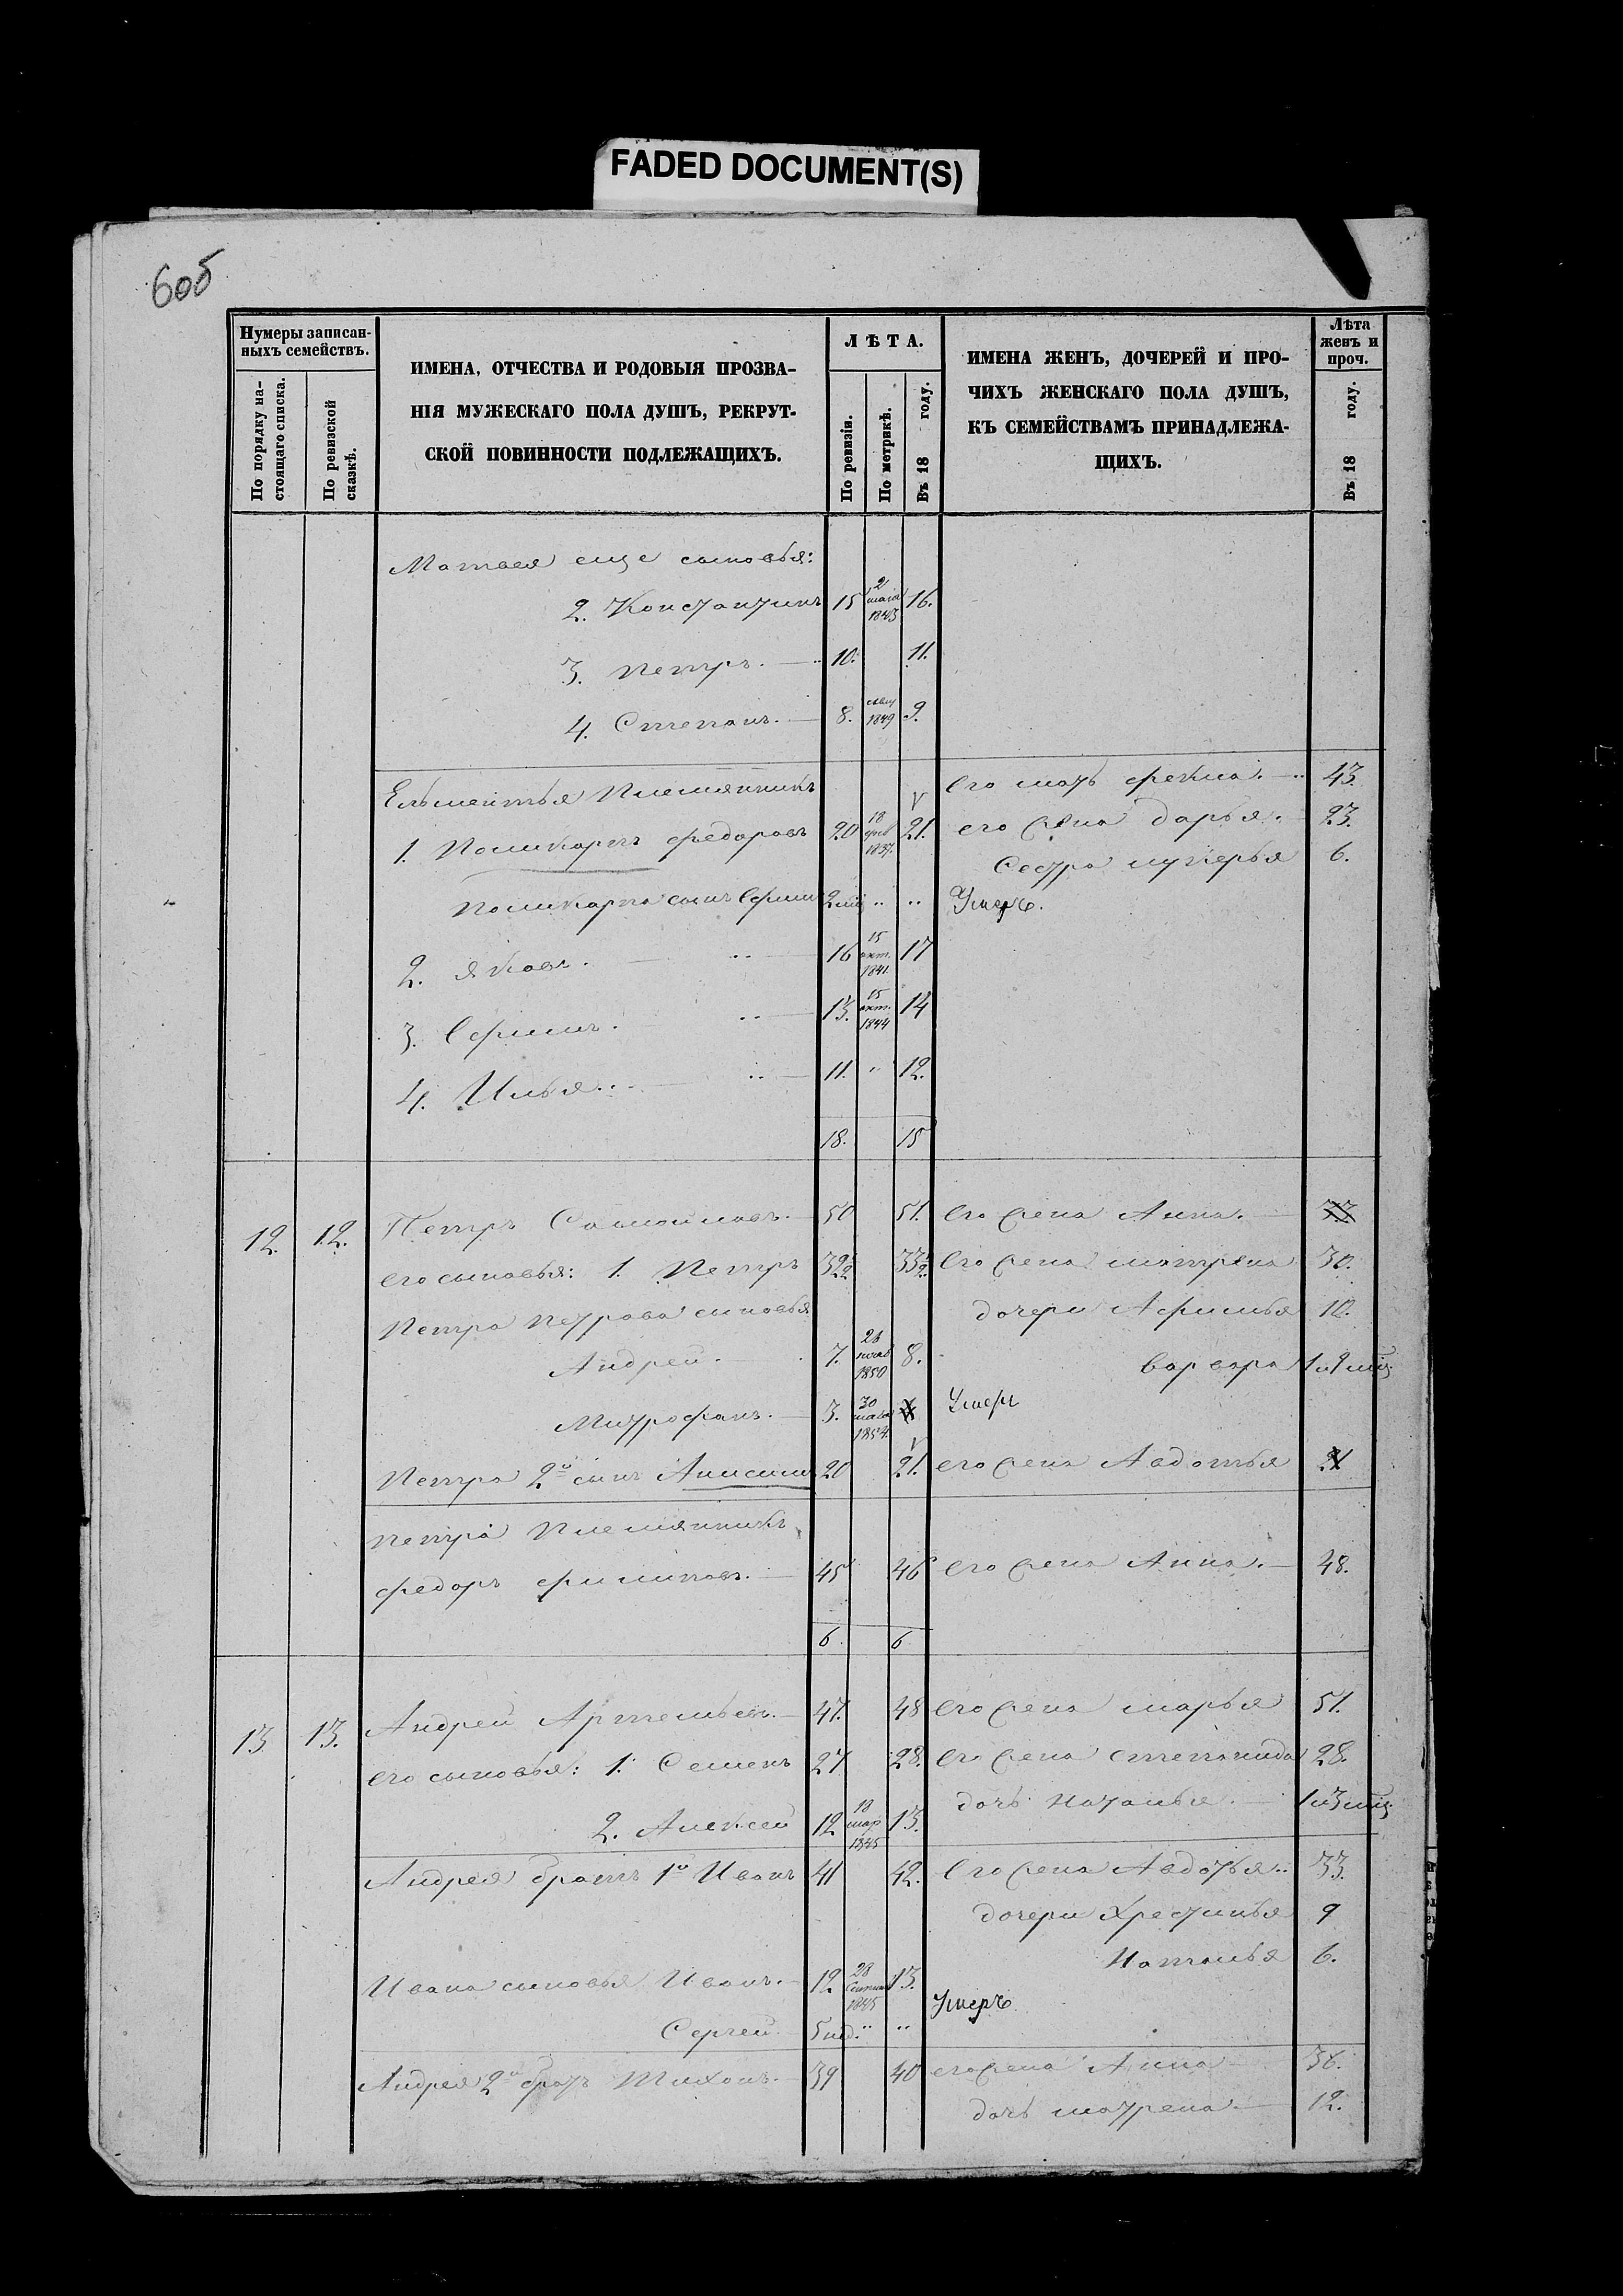 FADED DOCUMENT(S)
60б
Нумеры записан-
ныхъ семействъ.
По порядку на-
стоящаго списка.
По ревизской
сказкѣ.
ИМЕНА, ОТЧЕСТВА И РОДОВЫЯ ПРОЗВА-
НІЯ МУЖЕСКАГО ПОЛА ДУШЪ, РЕКРУТ-
СКОЙ ПОВИННОСТИ ПОДЛЕЖАЩИХЪ.
ЛѢТА.
По ревизіи.
По метрикѣ.
Въ 18 году.
ИМЕНА ЖЕНЪ, ДОЧЕРЕЙ И ПРО-
ЧИХЪ ЖЕНСКАГО ПОЛА ДУШЪ,
КЪ СЕМЕЙСТВАМЪ ПРИНАДЛЕЖА-
ЩИХЪ.
Лѣта
женъ и
проч.
Въ 18 году.
Матвея еще сыновья:
2. Константинъ 15 2 маія 1843 16.
3. Петръ. 10. 11.
4. Степанъ. 8. 1849 9.
племянникъ его мать фекла. 43.
1. Поликарпъ федоровъ 20 18 фев 1837. 21. его жена дарья. 23.
Сестра лукерья 6.
Поликарпа сынъ Ефимъ 2 мѣс Умеръ.
2. яковъ. 16 15 окт. 1841 17
3. Ефимъ. 13. 15 окт. 1844 14
4. Илья. 11. 12.
18. 15
12. 12. Петръ Самойловъ. 50 51. его жена Анна.
его сыновья: 1. Петръ 32 33 его жена матрена 30.
Петра Петрова сыновья дочери Афимья 10.
Андрей. 7. 26 нояб 1850 8. варвара 1 и 9 мѣс
Митрофанъ. 3. 30 1854. Умеръ
Петра 2й сынъ Анисимъ 20 21. его жена Авдотья
Петра Племянникъ
федоръ филиповъ. 45 46 его жена Анна. 48.
6. 6
13. 13. Андрей Артемьевъ. 47. 48 его жена марья 51.
его сыновья: 1. Семенъ 27 28. его жена степанида 28.
2. Алексей 12 18 мар 1845 13. дочь Наталья. 1 и 3 мѣс
Андрея братъ 1й Иванъ 41 42. его жена Авдотья 33.
дочери Хрестинья 9
Наталья 6.
Ивана сыновья Иванъ. 12 28 1845 13.
Сергей. 5 нед. Умеръ
Андрея 2й братъ Тихонъ. 39 40 его жена Анна 36.
дочь матрена. 12.